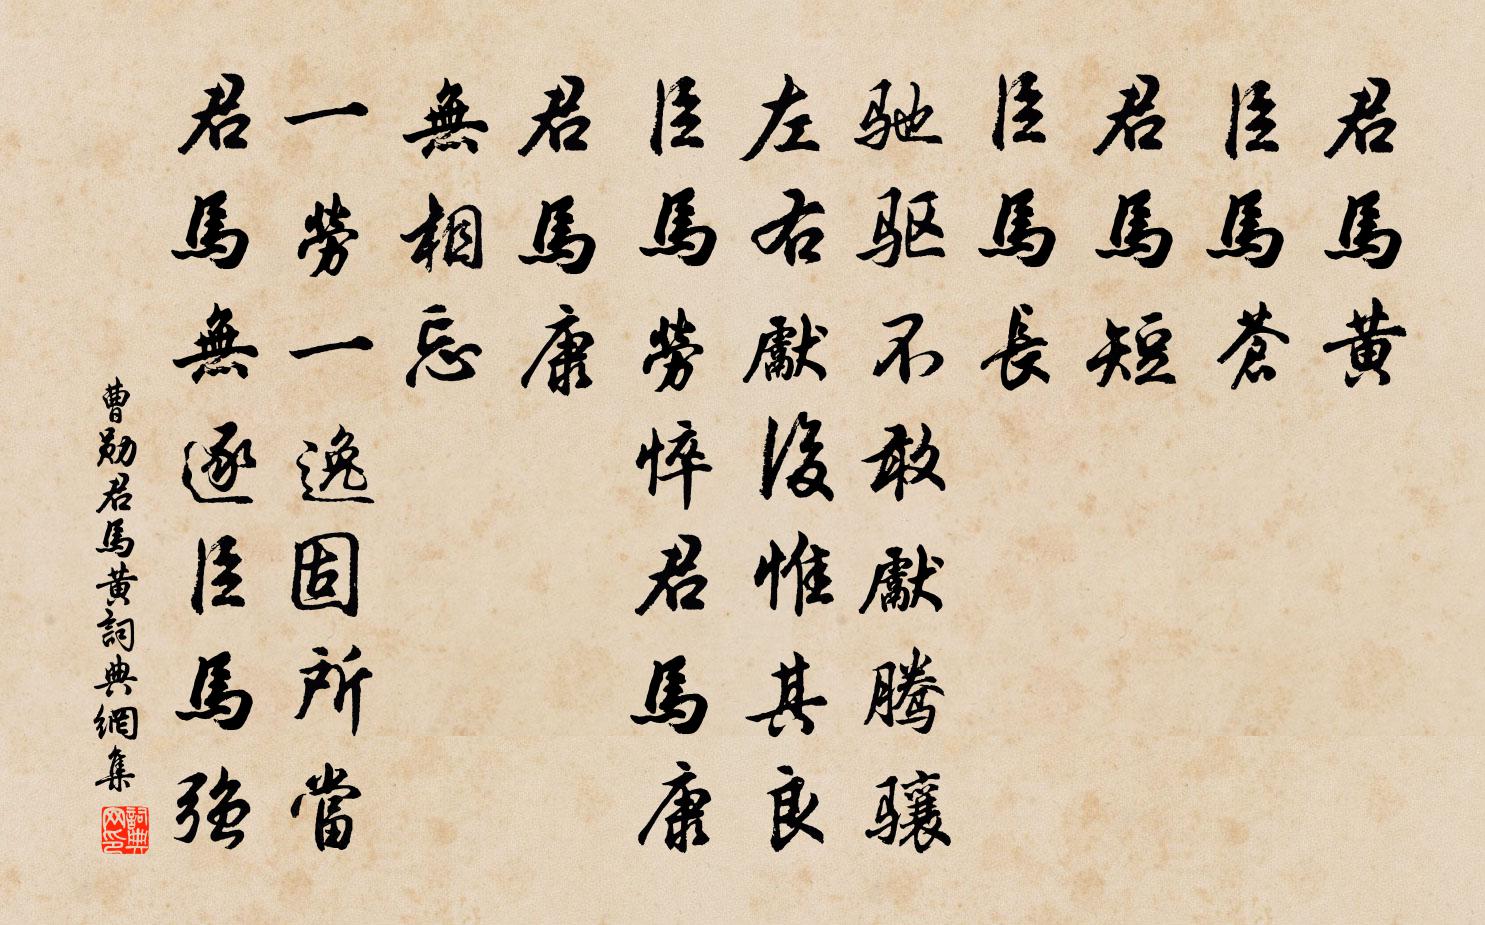 君馬黄
臣馬蒼
君馬短
臣馬長
驰驱不敢獻腾骧
左右獻後惟其良
臣馬勞悴君馬康
君馬康
無相忘
一勞一逸固所當
君馬無逐臣馬強
曹勛君馬黄詞典網集
詞典网印